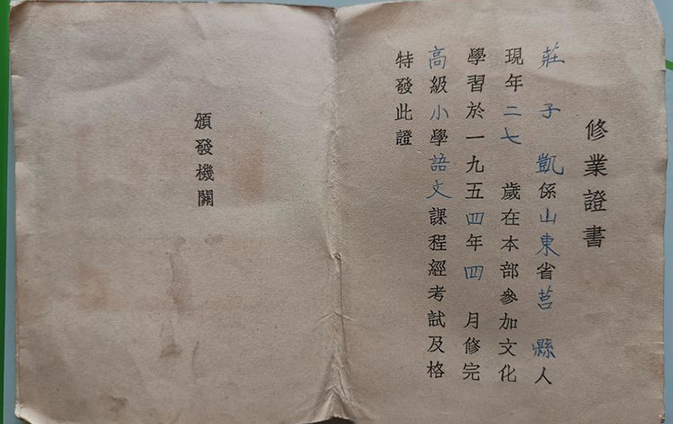 修業證書
莊子凱係山東省莒縣人
現年二七歲在本部參加文化
學習於一九五四年四月修完
高級小學語文課程經考試及格
特發此證
頒發機關